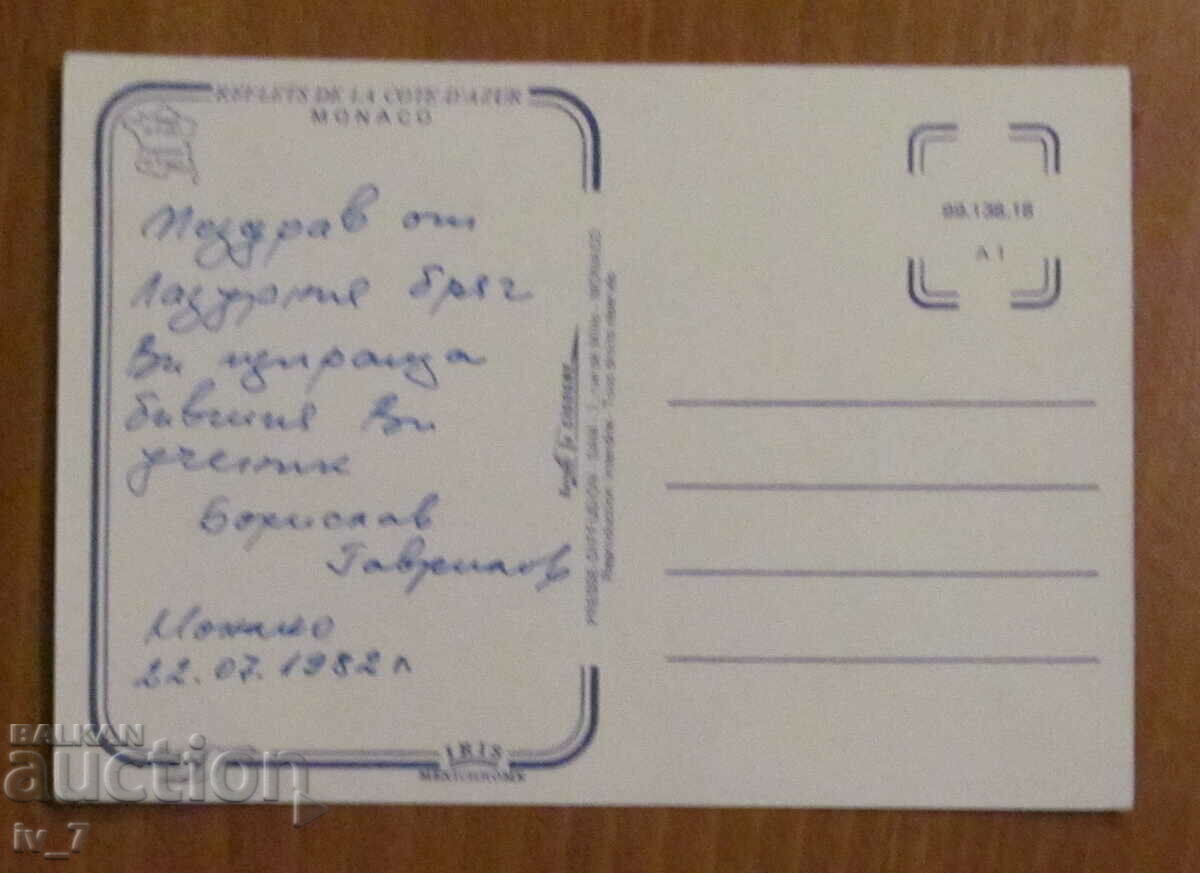 REFLETS DE LA COTE D'AZUR
MONACO
Поздрав от
Лазурния бряг
Ви изпраща
бившия Ви
ученик
Борислав
Гаврилов
Монако
22.07.1982 г.
IRIS
MEXICHROME
PRESSE-DIFFUSION
MONACO
Reproduction interdite. Tous droits réservés
99.138.18
A 1
BALKAN
auction
iv_7